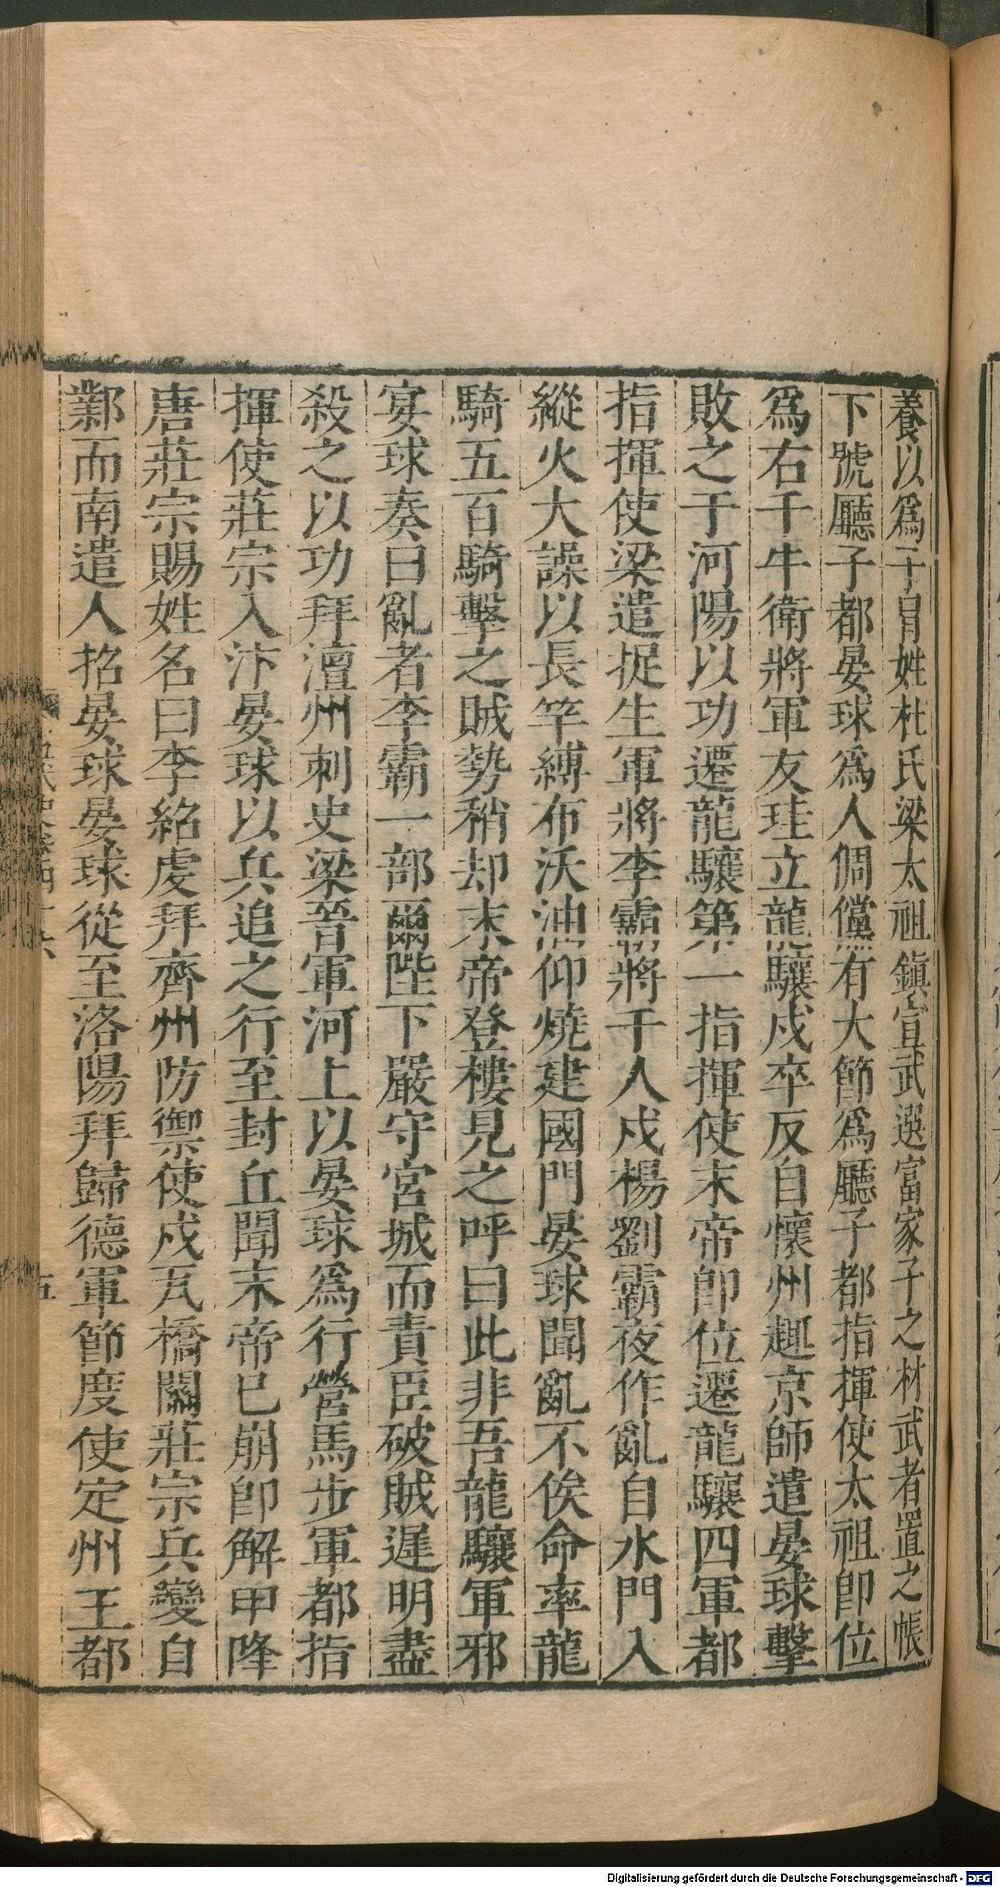 養以爲子冒姓杜氏梁太祖鎮宣武選富家子之材武者置之帳
下號廳子都晏球爲人倜儻有大節爲廳子都指揮使太祖卽位
爲右千牛衛將軍友珪立龍驤戍卒反自懷州趣京師遣晏球擊
敗之于河陽以功遷龍驤第一指揮使末帝卽位遷龍驤四軍都
指揮使梁遣捉生軍將李霸將千人戍楊劉霸夜作亂自水門入
縱火大譟以長竿縛布沃油仰燒建國門晏球聞亂不俟命率龍
騎五百騎擊之賊勢稍却末帝登樓見之呼曰此非吾龍驤軍邪
宴球奏曰亂者李霸一部爾陛下嚴守宮城而責臣破賊遲明盡
殺之以功拜澶州刺史梁晉軍河上以晏球爲行營馬步軍都指
揮使莊宗入汴晏球以兵追之行至封丘聞末帝已崩卽解甲降
唐莊宗賜姓名曰李紹虔拜齊州防禦使戍瓦橋關莊宗兵變自
鄴而南遣人招晏球晏球從至洛陽拜歸德軍節度使定州王都
五
Digitalisierung gefördert durch die Deutsche Forschungsgemeinschaft - DFG